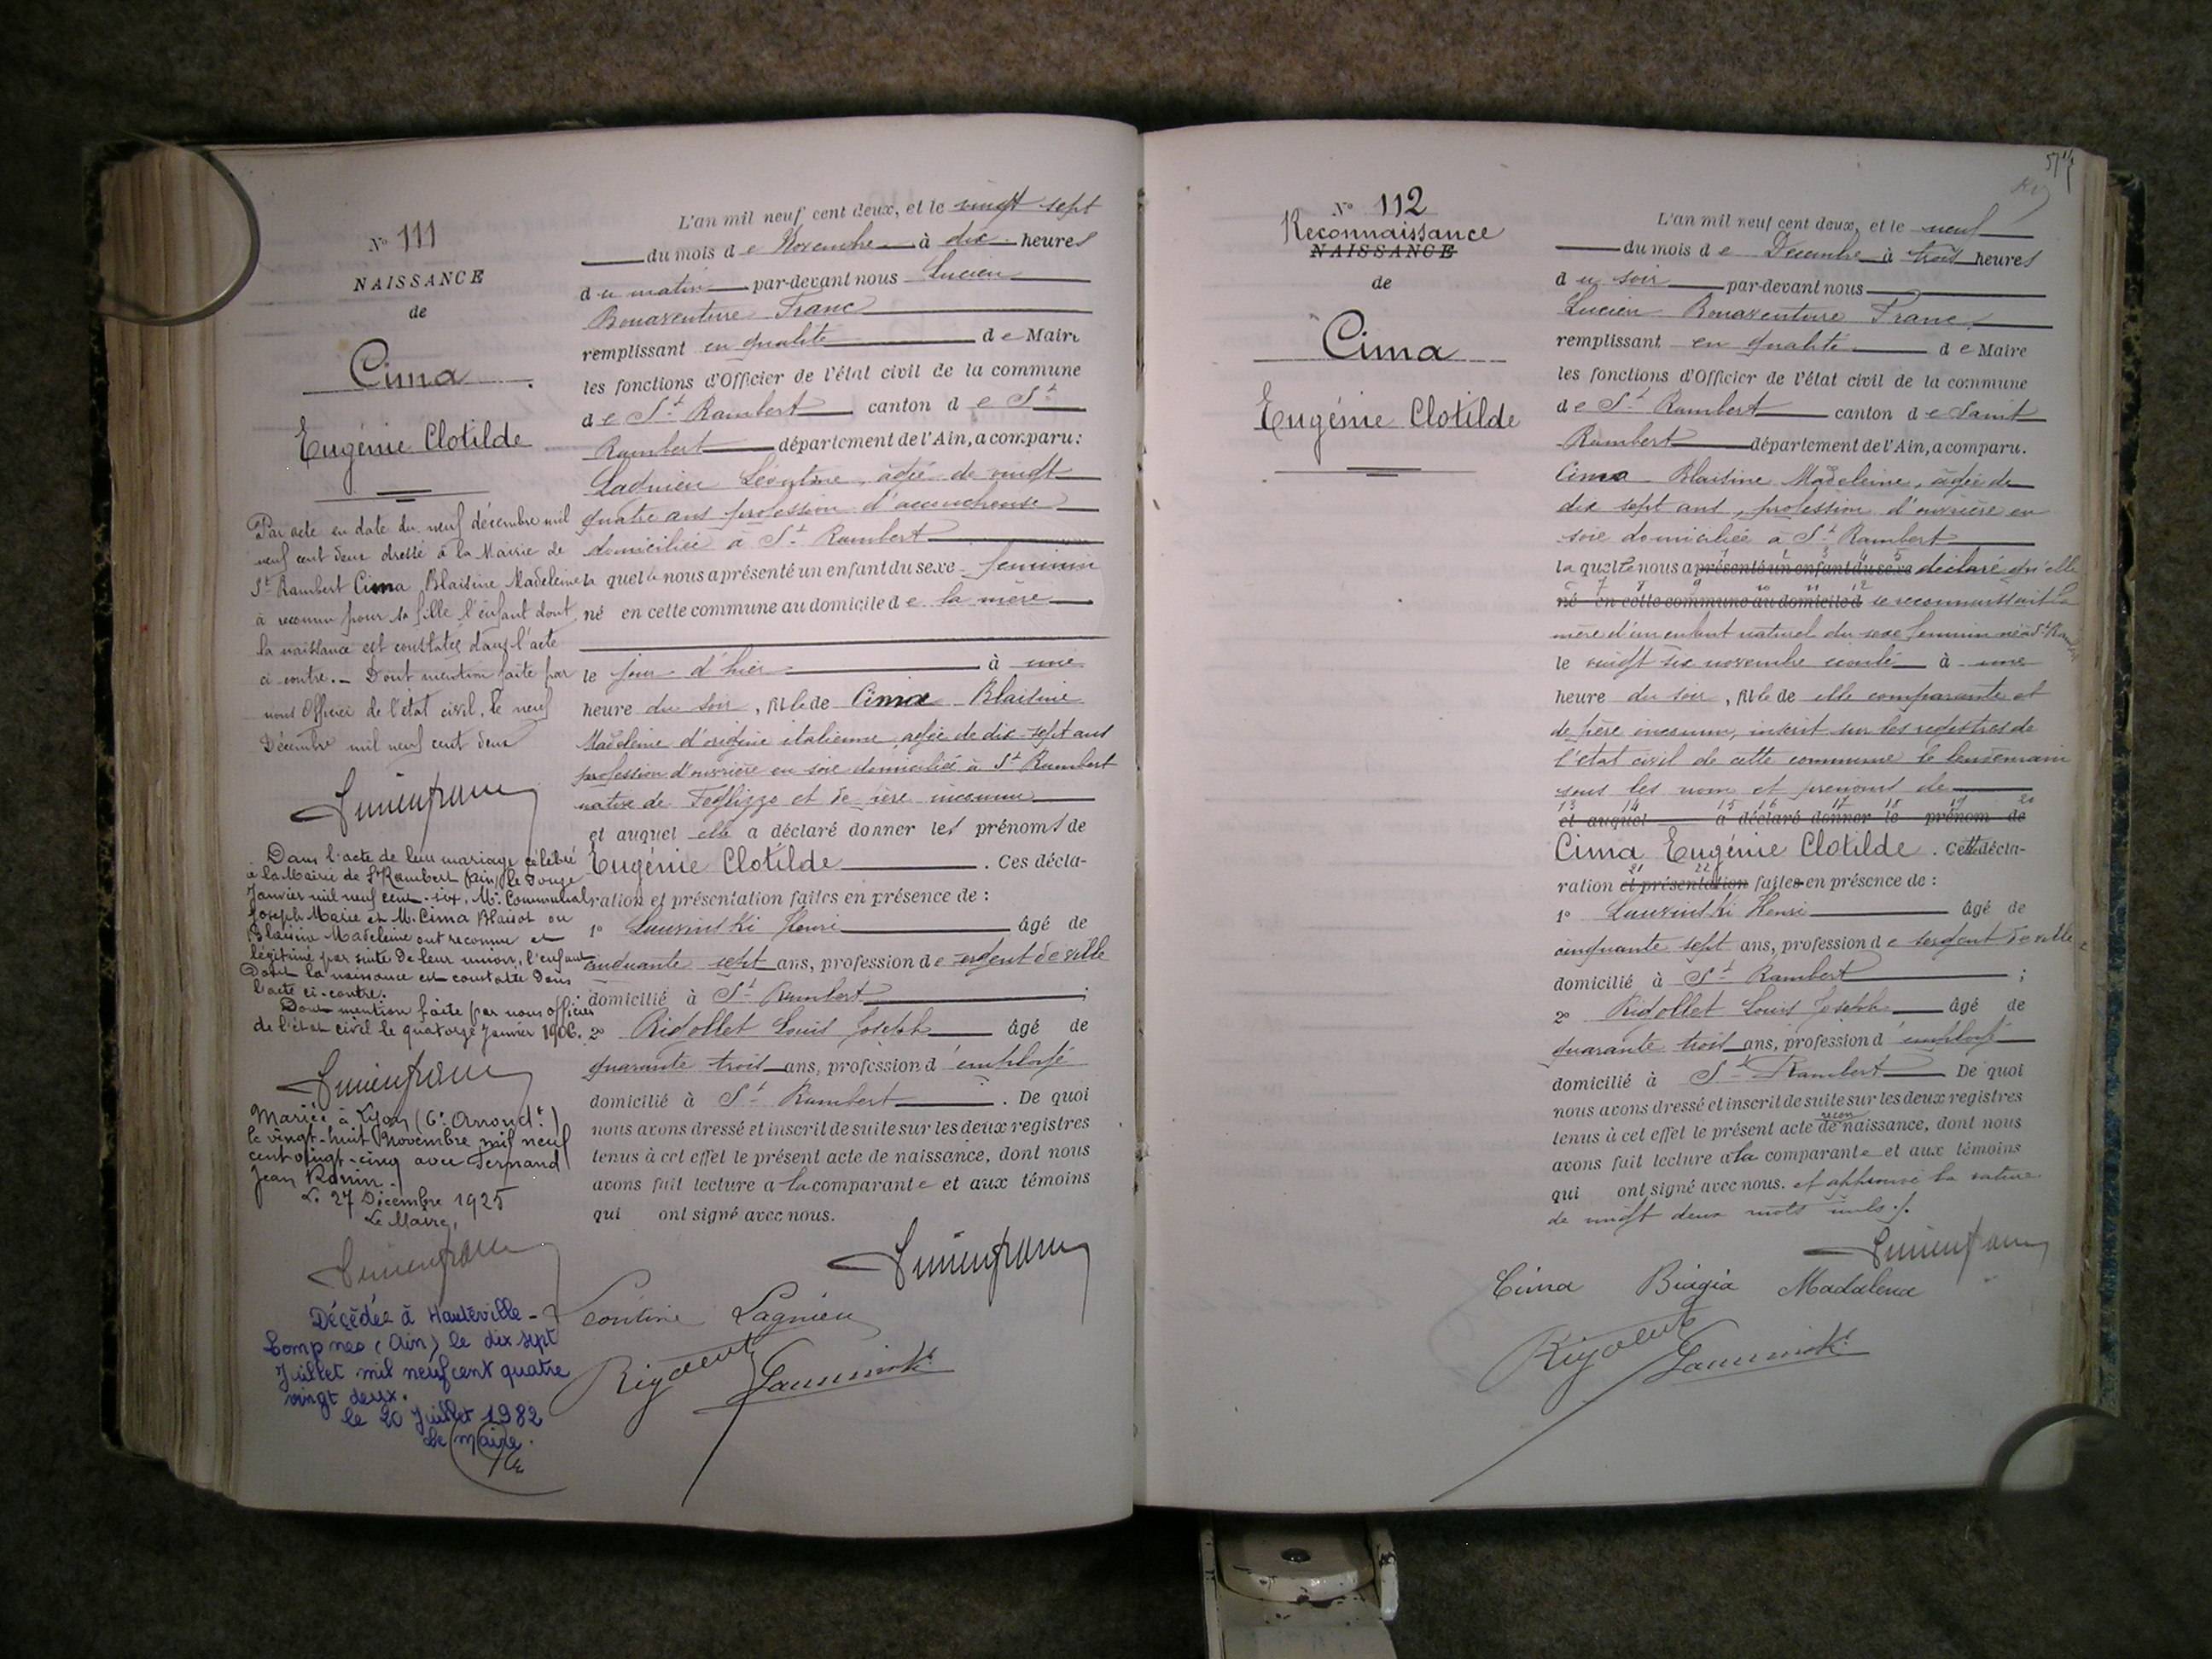 N° 111
NAISSANCE
de
Cima
Eugénie Clotilde
Par acte en date du neuf décembre mil
neuf cent deux dressé à la Mairie de
St Rambert Cima Blaisine Madeleine
à reconnu pour sa fille l'enfant dont
la naissance est constatée dans l'acte
ci contre. _ Dont mention faite par
nous Officier de l'état civil, le neuf
Décembre mil neuf cent deux
Dans l'acte de leur mariage célébré
à la Mairie de St Rambert (Ain) le douze
Janvier mil neuf cent-six, Mr. Communal
Joseph Marie et M. Cima Blaisot ou
Blaisine Madeleine ont reconnu et
légitimé par suite de leur union, l'enfant
Dont la naissance est constatée dans
l'acte ci-contre.
Dont mention faite par nous officier
de l'état civil le quatorze Janvier 1906.
Mariée à Lyon (6e Arrondt)
le vingt-huit Novembre mil neuf
cent vingt-cinq avec Fernand
Jean
Le 27 Décembre 1925
Le Maire,
Décédée à Hauteville-
Lompnes (Ain) le dix sept
Juillet mil neuf cent quatre
vingt deux.
le 20 Juillet 1982
Le Maire.
L'an mil neuf cent deux, et le vingt sept
du mois de Novembre à dix heures
du matin par-devant nous Lucien
Bonaventure Franc
remplissant en qualité de Maire
les fonctions d'Officier de l'état civil de la commune
de St Rambert canton de St
Rambert département de l'Ain, a comparu:
Lagnieu Léontine, agée de vingt
quatre ans profession d'accoucheuse
domiciliée à St Rambert
la quelle nous a présenté un enfant du sexe féminin
né en cette commune au domicile de la mère
le jour d'hier à une
heure du soir, fille de Cima Blaisine
Madeleine d'origine italienne, agée de dix-sept ans
profession d'ouvrière en soie domiciliée à St Rambert
native de et de père inconnu
et auquel elle a déclaré donner les prénoms de
Eugénie Clotilde. Ces décla-
ration et présentation faites en présence de :
1° Lauzinski Henri âgé de
cinquante sept ans, profession de sergent de ville
domicilié à St Rambert ;
2° Rigollet Louis Joseph âgé de
quarante trois ans, profession d'employé
domicilié à St Rambert. De quoi
nous avons dressé et inscrit de suite sur les deux registres
tenus à cet effet le présent acte de naissance, dont nous
avons fait lecture a la comparante et aux témoins
qui ont signé avec nous.
Léontine Lagnieu
N° 112
Reconnaissance
NAISSANCE
de
Cima
Eugénie Clotilde
L'an mil neuf cent deux, et le neuf
du mois de Décembre à trois heures
du soir par-devant nous
Lucien Bonaventure Franc
remplissant en qualité de Maire
les fonctions d'Officier de l'état civil de la commune
de St Rambert canton de Saint
Rambert département de l'Ain, a comparu.
Cima Blaisine Madeleine, agée de
dix sept ans, profession d'ouvrière en
soie domiciliée à St Rambert
1 2 3 4 5
la quelle nous a présenté un enfant du sexe déclaré qu'elle
7 8 9 10 11 12
né en cette commune au domicile d se reconnaissait la
mère d'un enfant naturel du sexe féminin né à St Rambert
le vingt six novembre écoulé à une
heure du soir, fille de elle comparante et
de père inconnu, inscrit sur les registres de
l'état civil de cette commune le lendemain
sous les nom et prénoms de
13 14 15 16 17 18 19 20
et auquel a déclaré donner le prénom de
Cima Eugénie Clotilde. Cette décla-
21 22
ration et présentation faite en présence de :
1° Lauzinski Henri âgé de
cinquante sept ans, profession de sergent de ville
domicilié à St Rambert ;
2° Rigollet Louis Joseph âgé de
quarante trois ans, profession d'employé
domicilié à St Rambert De quoi
nous avons dressé et inscrit de suite sur les deux registres
recon
tenus à cet effet le présent acte de naissance, dont nous
avons fait lecture a la comparante et aux témoins
qui ont signé avec nous. et approuvé la rature
de vingt deux mots nuls ./.
Cima Biagia Madalena